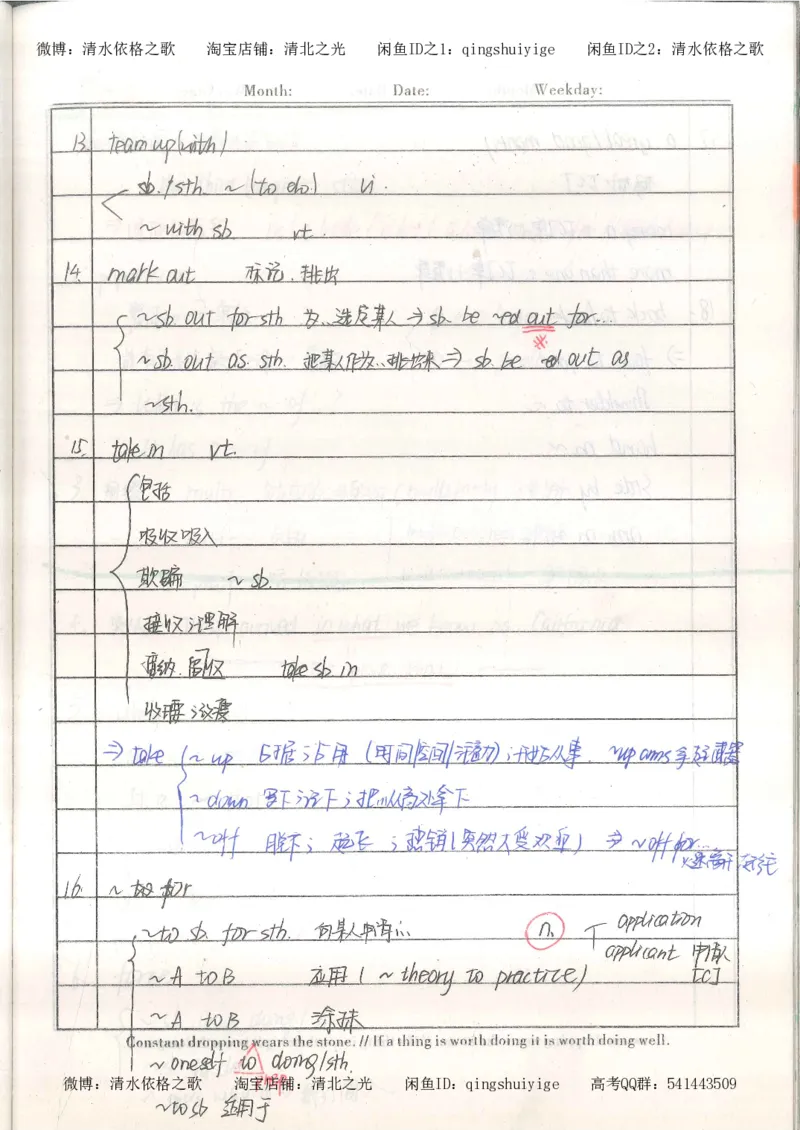 微博：清水依格之歌 淘宝店铺：清北之光 闲鱼ID之1：qingshuiyige 闲鱼ID之2：清水依格之歌
Month: Date: Weekday:
13. team up (with)
sb. / sth. ~ (to do.) vi.
~ with sb vt.
14. mark out 标记，排出
~ sb. out for sth 为…选定某人 ⇒ sb. be ~ed out for...
~ sb. out as. sth. 把某人作为…排出来 ⇒ sb. be ~ed out as
~ sth.
15. take in vt.
包括
吸收吸入
欺骗 ~ sb.
接收；理解
容纳，留收 take sb. in
收理；改
⇒ take ~ up 占据；占用（时间/空间/注意力）；开始从事. ~ up arms 拿起武器
~ down 写下；记下；把…从高处拿下
~ off 脱下；起飞；热销（突然大受欢迎） ⇒ ~ off for...
16. ~ to for
~ to sb. for sth. 向某人申请… n. application
applicant 申请人 [C]
~ A to B 应用（ ~ theory to practice）
~ A to B 涂抹
Constant dropping wears the stone. // If a thing is worth doing it is worth doing well.
~ oneself to doing/sth.
微博：清水依格之歌 淘宝店铺：清北之光 闲鱼ID：qingshuiyige 高考QQ群：541443509
~ to sb 适用于